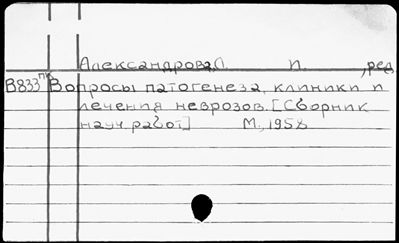 Александрова, Л. П. ,ред.
В833пк Вопросы патогенеза, клиники и
лечения неврозов. [Сборник
науч. работ] М., 1958